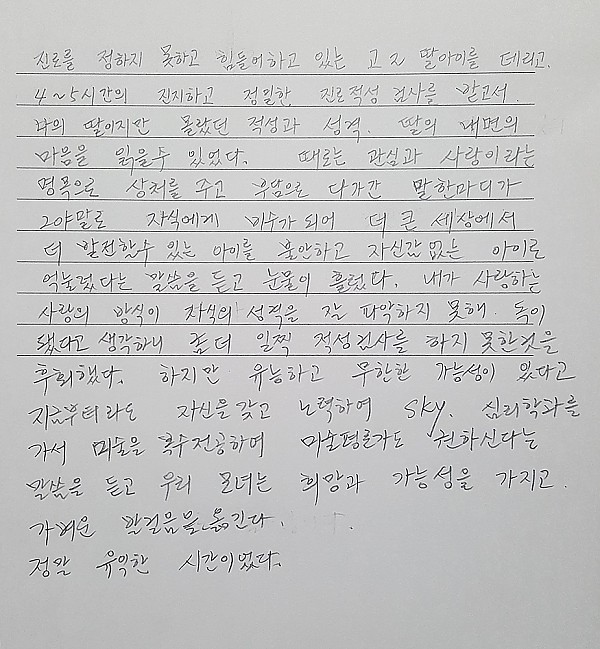 진로를 정하지 못하고 힘들어하고 있는 고2 딸아이를 데리고.
4~5시간의 진지하고 정밀한, 진로적성검사를 받고서.
나의 딸이지만 몰랐던 적성과 성격. 딸의 내면의
마음을 읽을수 있었다. 때로는 관심과 사랑이라는
명목으로 상처를 주고 부담으로 다가간 말한마디가
그야말로 자식에게 비수가 되어 더 큰 세상에서
더 발전할수 있는 아이를 불안하고 자신감없는 아이로
억눌렀다는 말씀을 듣고 눈물이 흘렀다. 내가 사랑하는
사랑의 방식이 자식의 성격을 잘 파악하지 못해. 독이
됐다고 생각하니 좀더 일찍 적성검사를 하지 못한것을
후회했다. 하지만 유능하고 무한한 가능성이 있다고
지금부터라도 자신을갖고 노력하여 sky. 심리학과를
가서 미술을 복수전공하여 미술평론가도 권하신다는
말씀을 듣고 우리 모녀는 희망과 가능성을 가지고.
가벼운 발걸음을 옮긴다.
정말 유익한 시간이었다.